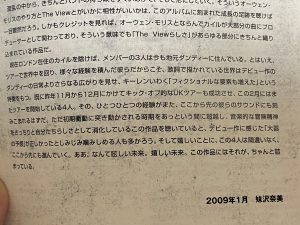 オーウェン・モリスとThe Viewがいかに相性がいいかは、このアルバムに刻まれた成長の足跡を聴けば
一目瞭然だろう。しかもクレジットを見れば、オーウェン・モリスとならんでカイルが大部分の曲にプロ
デューサーとして関わっており、そういう意味でも「The Viewらしさ」があらゆる部分にきちんと織り
込まれている作品だ。
現在ロンドン在住のカイルを除けば、メンバーの3人は今も地元ダンディーに住んでいる。とはいえ、
ツアーで世界中を回り、様々な経験を積んだ彼らだからこそ、歌詞で描かれている世界はデビュー作の
ダンディーの日常よりさらなる広がりを見せ、キーレンいわく「フィクショナルな要素も増えた」という
昨年11月から12月にかけてキック・オフ的なUKツアーも成功させ、この2月には
ツアーを開始している4人。その、ひとつひとつの経験がまた、ここから先の彼らのサウンドにも刻
みこまれるはずだ。ただ初期衝動に突き動かされる時期をあっという間に超越し、音楽的な冒険精神
をきっちりと自分たちらしさとして消化しているこの作品を聴いていると、デビュー作に感じた「大器
の予感」が正しかったとしみじみ噛みしめる人も多かろう。そして嬉しいことに、この4人は間違いなく、
ここから先にも進んでいく。ああ!なんて嬉しい未来。嬉しい未来。この作品にはそれが、ちゃんと詰
まっている。
2009年1月　妹沢奈美